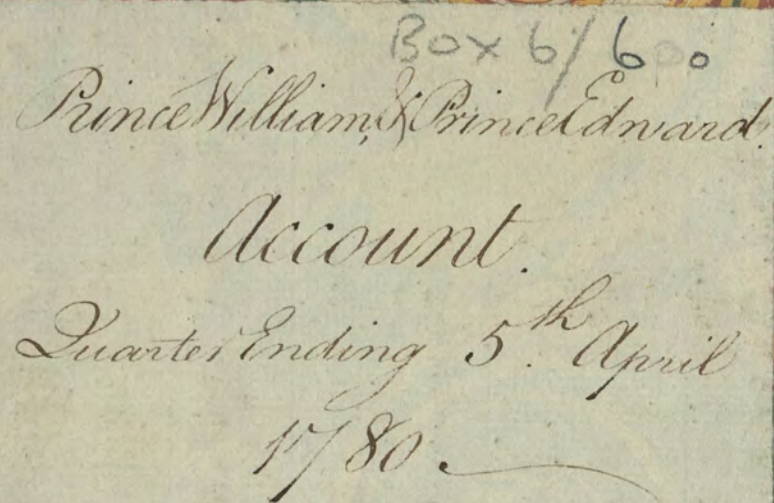 Box 6/6
Prince William, & Prince Edward.
Account.
Quarter Ending 5.th April
1780.